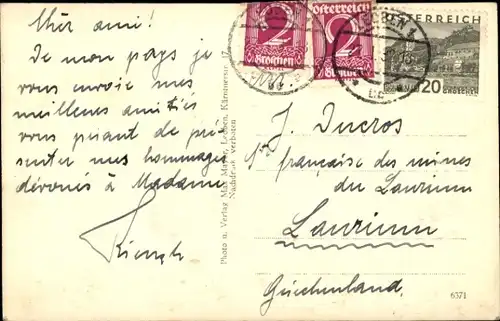 Cher ami!
De mon pays je
vous envoie mes
meilleures amitiés
vous priant de pré-
senter mes hommages
dévoués à Madame.
Photo u. Verlag Max Mayer, Leoben, Kärntnerstr. 17
Nachdruck verboten
2
Groschen
Österreich
2
Groschen
LEOBEN 1
ÖSTERREICH
20
GROSCHEN
J. Ducros
française des mines
du Laurium
Laurium
Griechenland.
6371